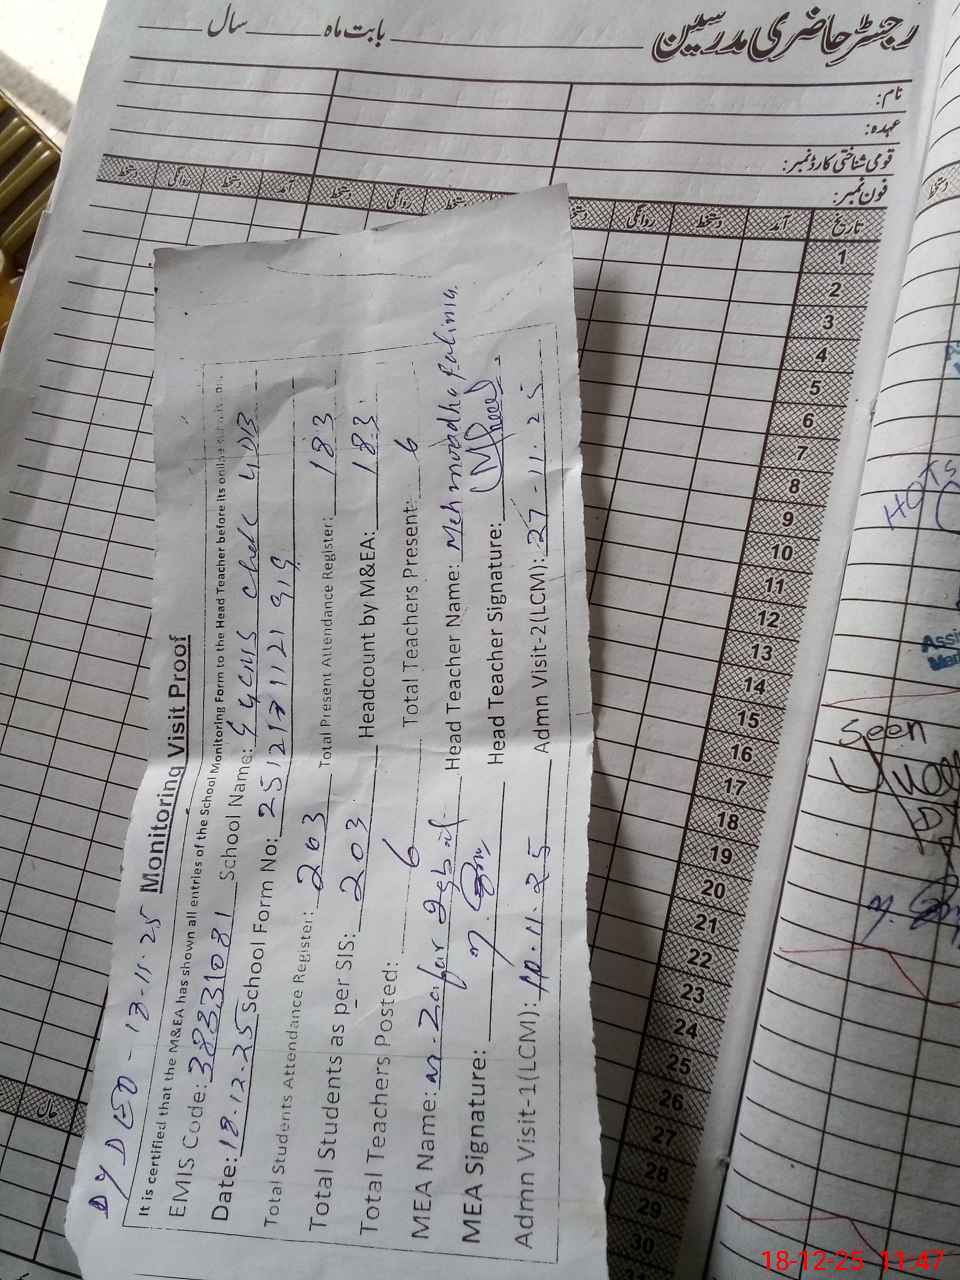 رجسٹر حاضری مدرسین ________ بابت ماہ ________ سال ________
نام:
عہدہ:
قومی شناختی کارڈ نمبر:
فون نمبر:
تاریخ آمد دستخط روانگی دستخط آمد دستخط روانگی دستخط
1
2
3
4
5
6
7
8
9
10
11
12
13
14
15
16
17
18
19
20
21
22
23
24
25
26
27
28
29
30
Dy DEO - 13-11-25 Monitoring Visit Proof
It is certified that the M&EA has shown all entries of the School Monitoring Form to the Head Teacher before its online
EMIS Code: 38883108 School Name: chak
Date: 18-12-25 School Form No: 2512171121919
Total Students Attendance Register: 203 Total Present Attendance Register: 183
Total Students as per SIS: 203 Headcount by M&EA: 183
Total Teachers Posted: 6 Total Teachers Present: 6
MEA Name: M. Zafar Head Teacher Name:
MEA Signature: Head Teacher Signature:
Admn Visit-1(LCM): 10.11.25 Admn Visit-2(LCM): 27-11-25
Seen
18-12-25 11:47